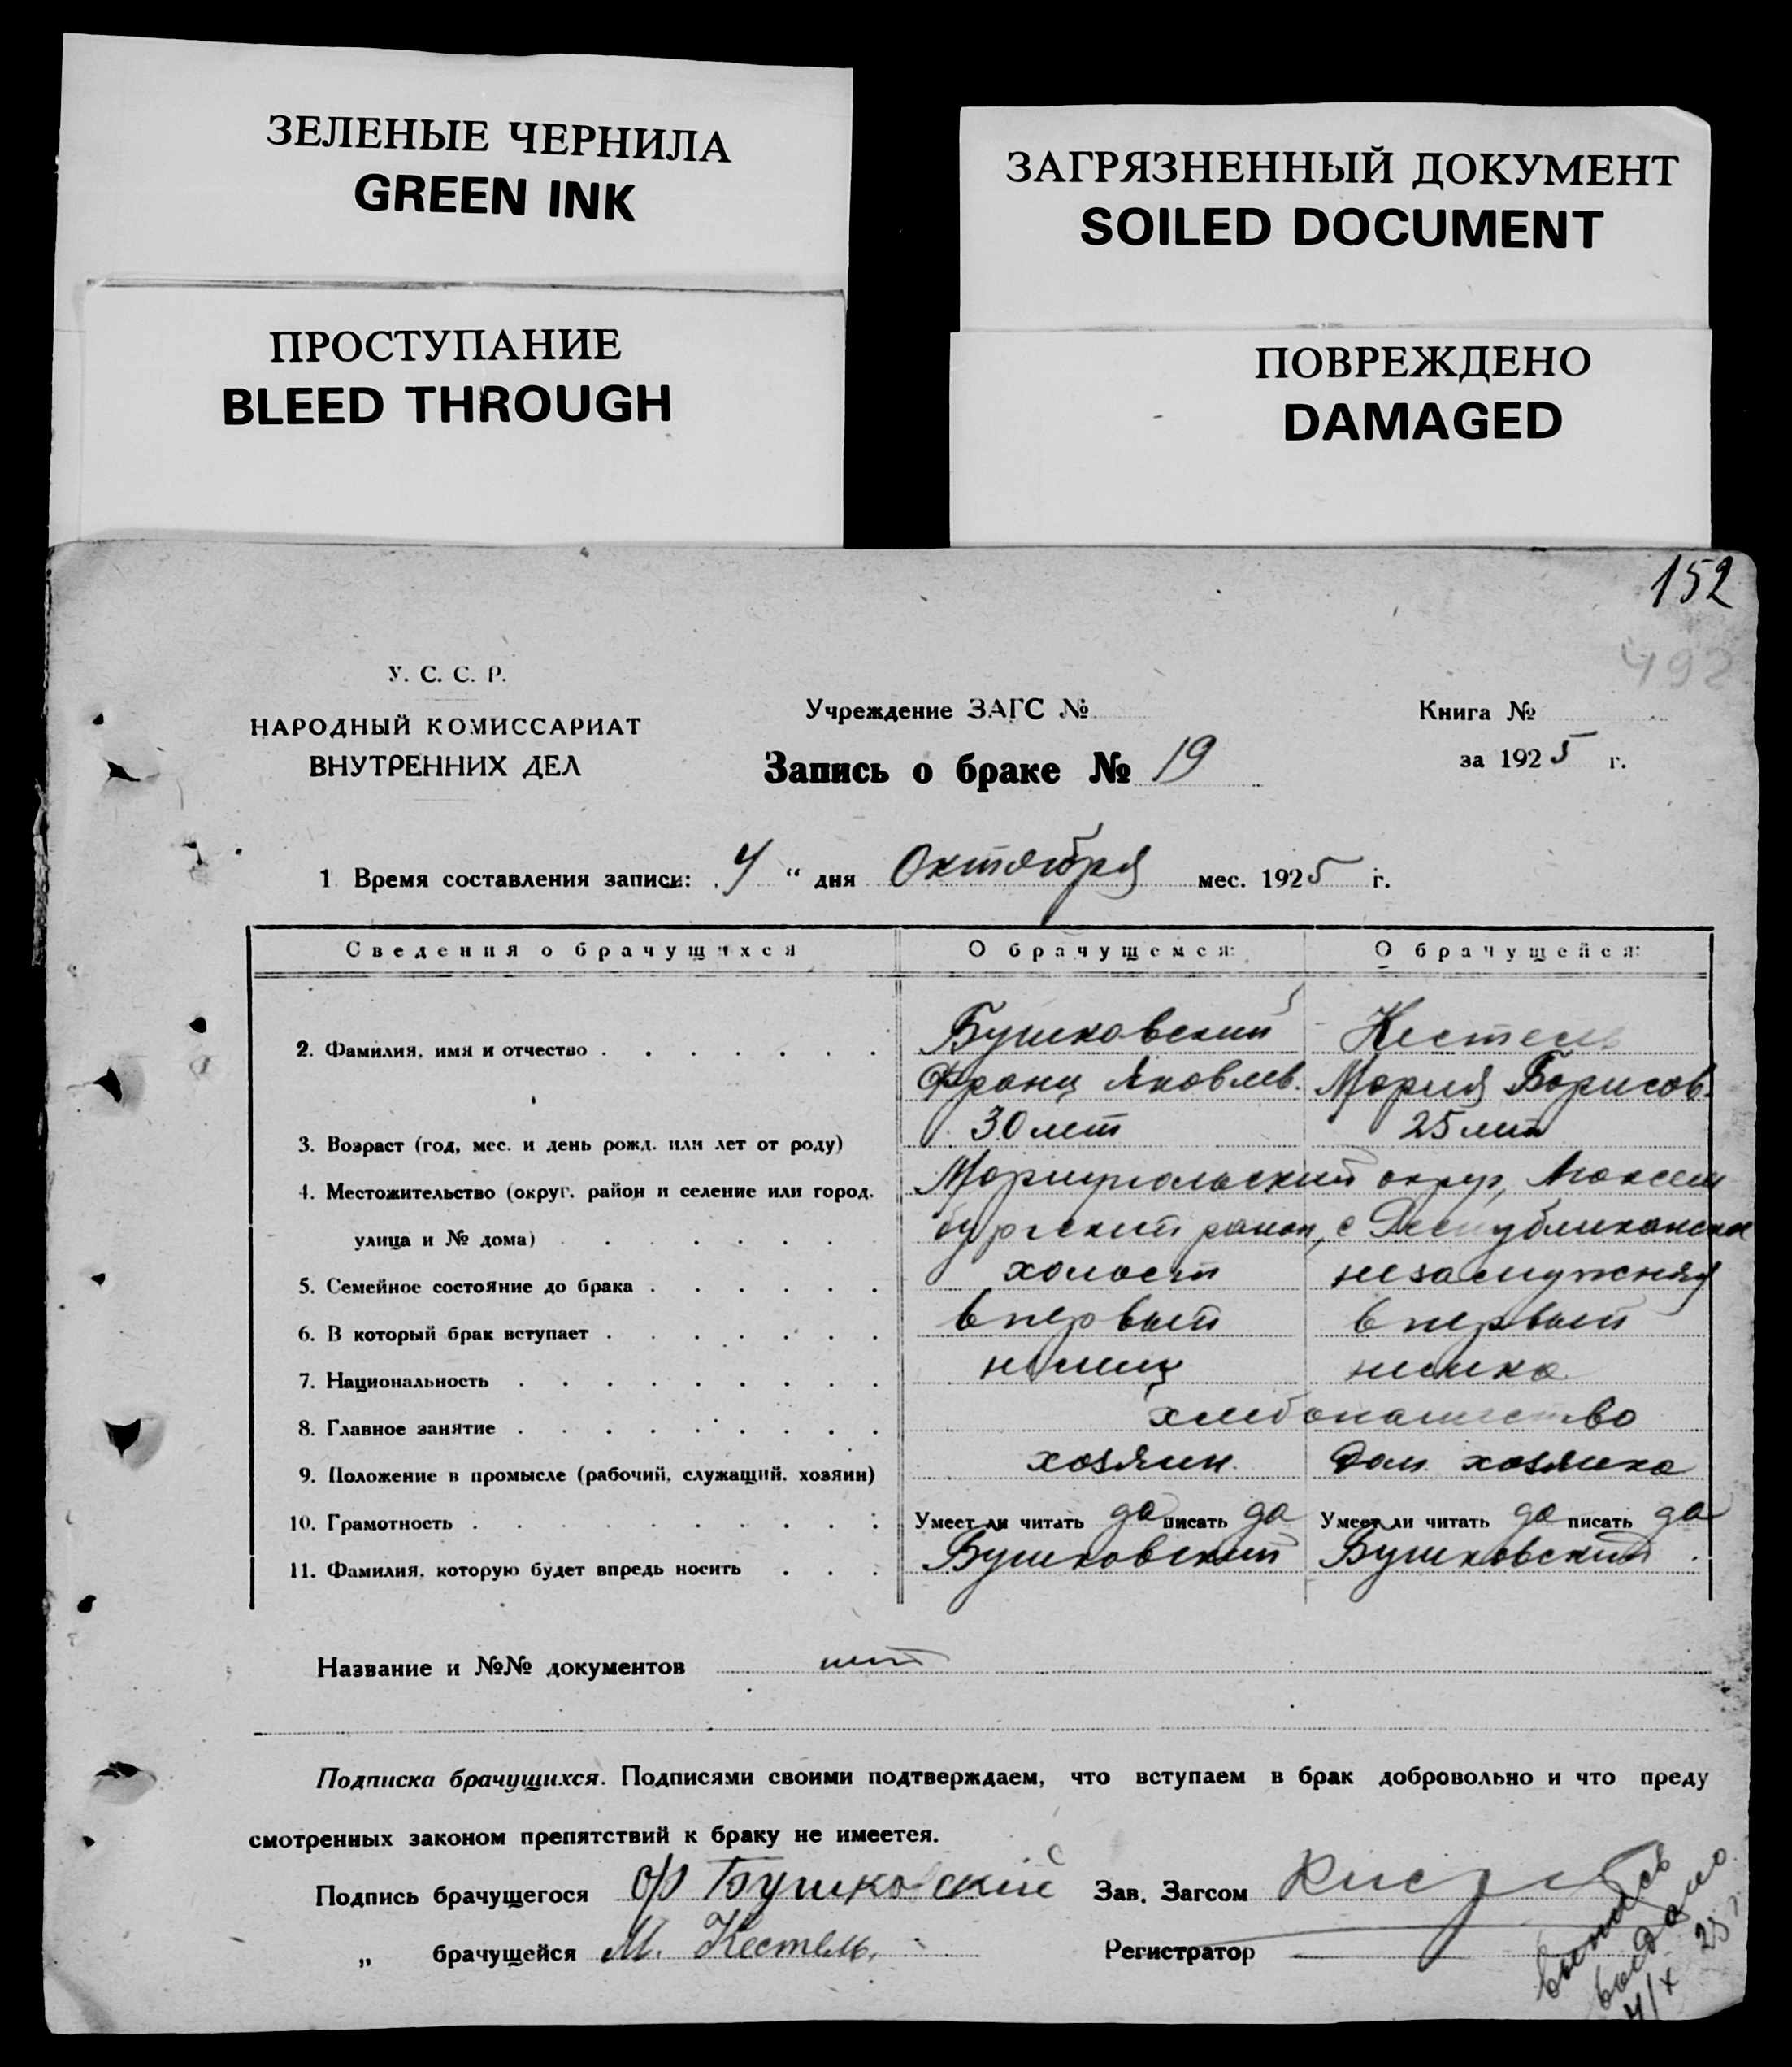 ЗЕЛЕНЫЕ ЧЕРНИЛА
GREEN INK
ЗАГРЯЗНЕННЫЙ ДОКУМЕНТ
SOILED DOCUMENT
ПРОСТУПАНИЕ
BLEED THROUGH
ПОВРЕЖДЕНО
DAMAGED
152
492
У. С. С. Р.
НАРОДНЫЙ КОМИССАРИАТ
ВНУТРЕННИХ ДЕЛ
Учреждение ЗАГС №
Запись о браке № 19
Книга №
за 1925 г.
1 Время составления записи: 4 " дня Октября мес. 1925 г.
Сведения о брачущихся О брачущемся: О брачущейся:
2. Фамилия, имя и отчество Бушковский Кестель
Франц Яковлев. Мария Борисов.
3. Возраст (год, мес. и день рожд. или лет от роду) 30 лет 25 лет
4. Местожительство (округ. район и селение или город. Мариупольский округ, Люксем
улица и № дома) бургский район, с Республиканское
5. Семейное состояние до брака холост незамужняя
6. В который брак вступает в первый в первый
7. Национальность немец немка
8. Главное занятие хлебопашество
9. Положение в промысле (рабочий, служащий, хозяин) хозяин. Дом. хозяйка
10. Грамотность Умеет ли читать да писать да Умеет ли читать да писать да
11. Фамилия, которую будет впредь носить Бушковский Бушковский
Название и №№ документов нет
Подписка брачущихся. Подписями своими подтверждаем, что вступаем в брак добровольно и что преду
смотренных законом препятствий к браку не имеетея.
Подпись брачущегося Ф Бушковскій Зав. Загсом
„ брачущейся М. Кестель. Регистратор
выпись
выдано
4/X 25 г